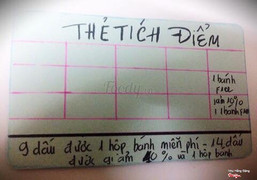 THẺ TÍCH ĐIỂM
1 bánh
Free
giảm 10%
1 bánh free
9 dấu được 1 hộp bánh miễn phí - 14 dấu
được giảm 10% và 1 hộp bánh